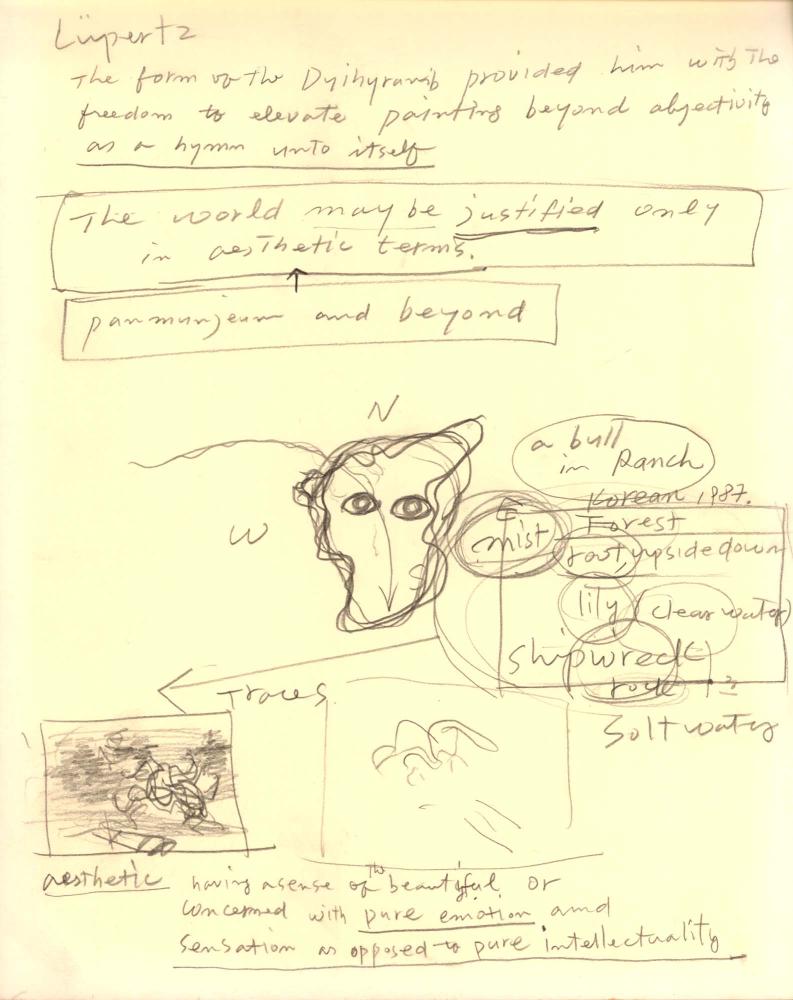 Lüpertz
The form of the Dyihyramb provided him with the
freedom to elevate painting beyond abjectivity
as a hymn unto itself
The world may be justified only
in aesthetic terms.
panmunjeum and beyond
N
a bull
in Ranch
Korean 1987.
W
E
Forest
mist
root, upside down
lily (clear water)
S
shipwreck
rock
Traces
Solt water
aesthetic having a sense of the beautiful or
concerned with pure emotion and
sensation as opposed to pure intellectuality